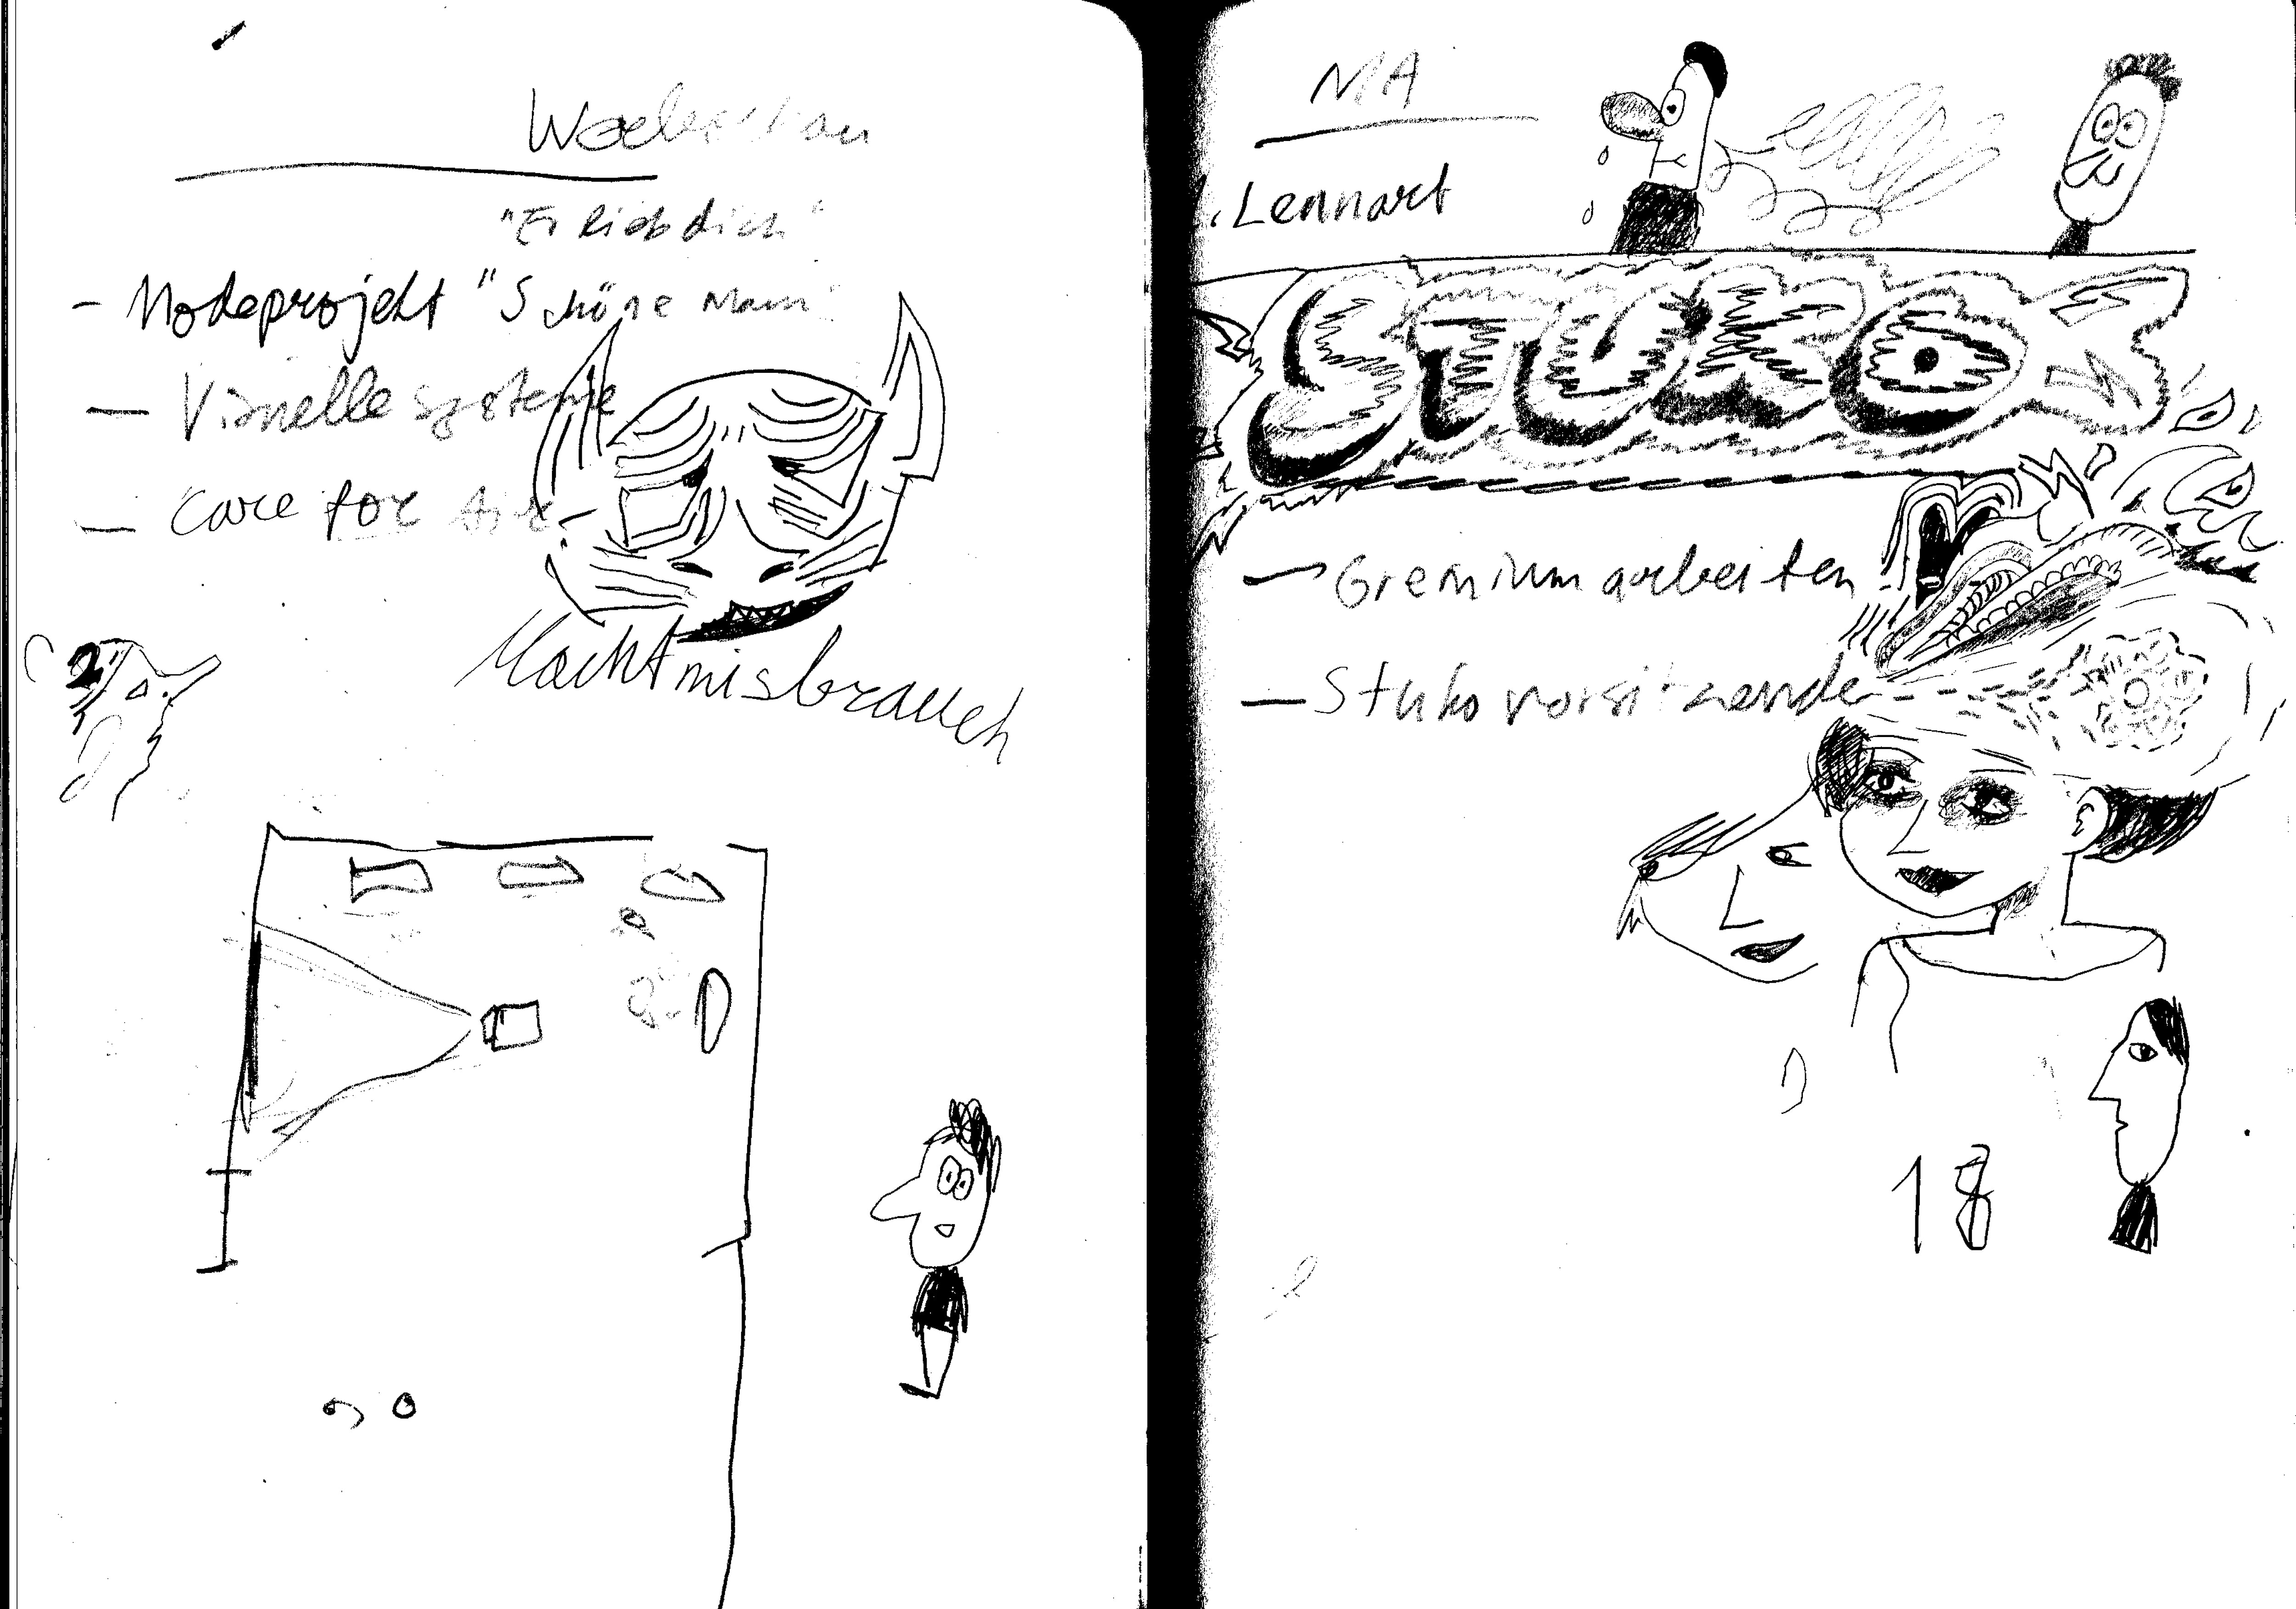 "Er lieb dich"
- Modeprojekt "Schöne Mann"
- Visuelle systeme
- Care for Air
Machtmisbrauch
MA
. Lennart
STUKO
- Gremium arbeiten
- Stuko vorsitzende
18